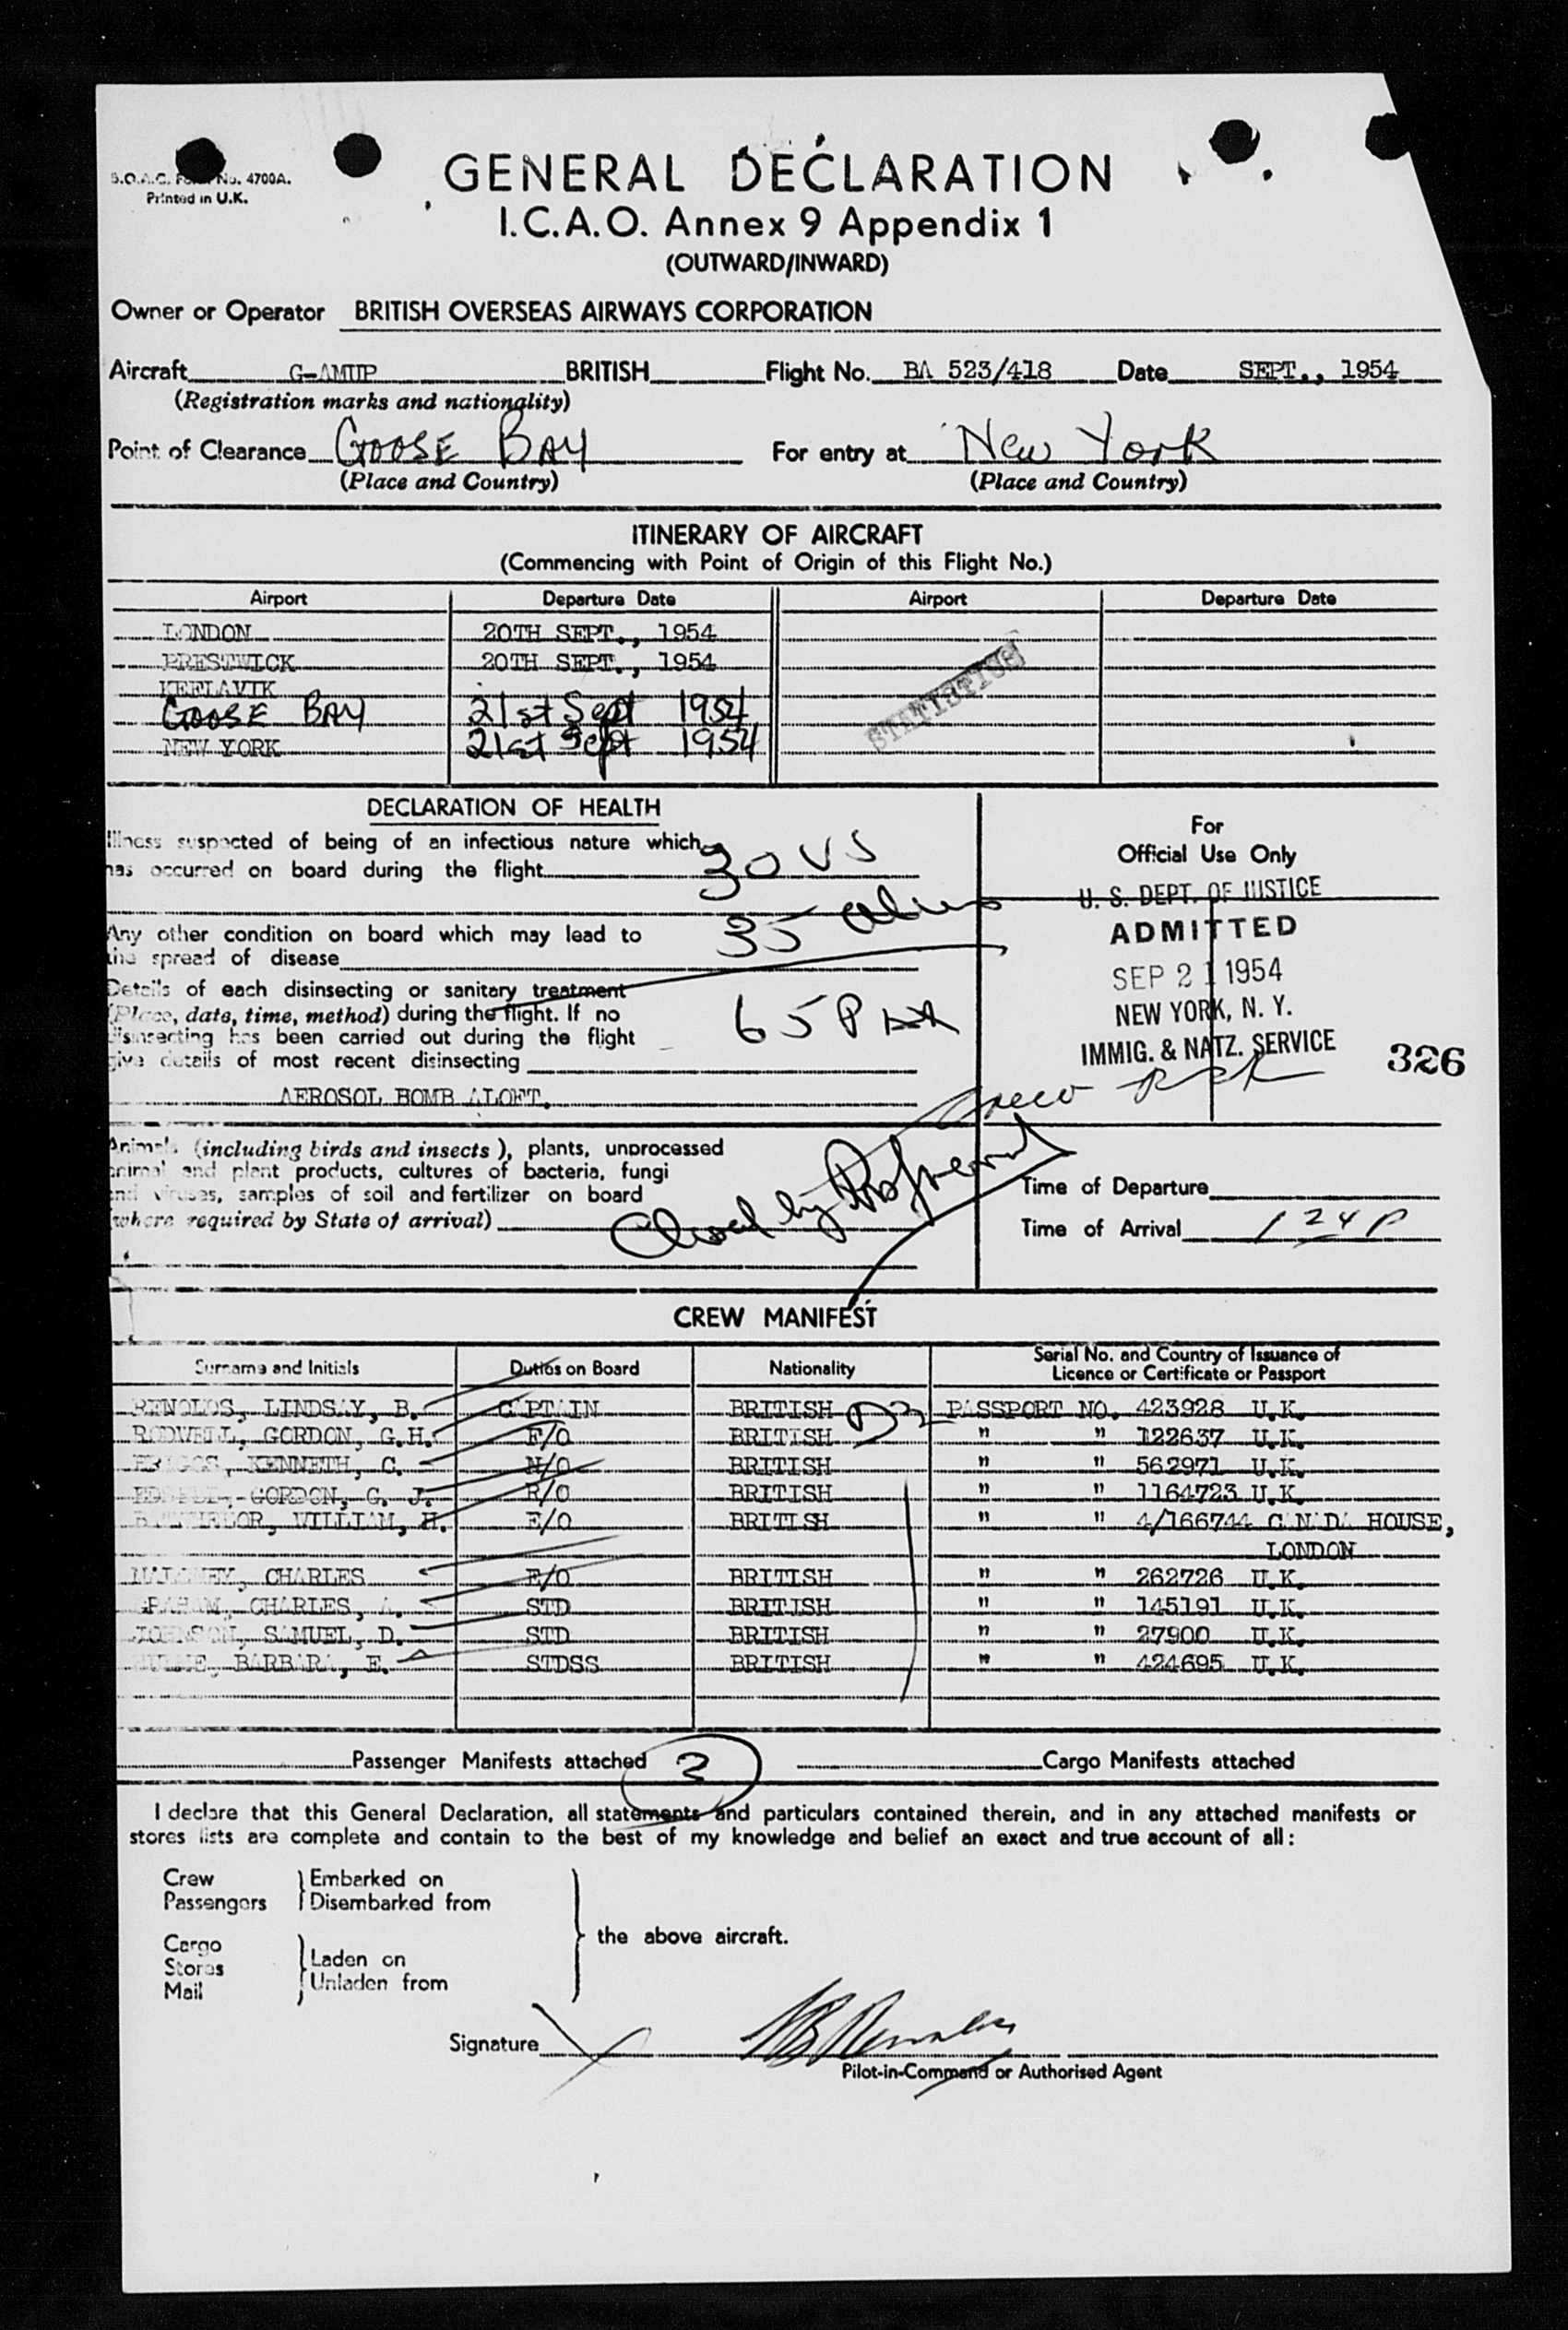 B.O.A.C. Form No. 4700A.
Printed in U.K.
GENERAL DECLARATION
I.C.A.O. Annex 9 Appendix 1
(OUTWARD/INWARD)
Owner or Operator BRITISH OVERSEAS AIRWAYS CORPORATION
Aircraft G-AMUP BRITISH Flight No. BA 523/418 Date SEPT., 1954
(Registration marks and nationality)
Point of Clearance GOOSE BAY For entry at New York
(Place and Country) (Place and Country)
ITINERARY OF AIRCRAFT
(Commencing with Point of Origin of this Flight No.)
Airport Departure Date Airport Departure Date
LONDON 20TH SEPT., 1954
PRESTWICK 20TH SEPT., 1954
KEFLAVIK
GOOSE BAY 21st Sept 1954
NEW YORK 21st Sept 1954
STATISTICS
DECLARATION OF HEALTH
Illness suspected of being of an infectious nature which
has occurred on board during the flight
30 US
35 alien
Any other condition on board which may lead to
the spread of disease
Details of each disinsecting or sanitary treatment
(Place, date, time, method) during the flight. If no
disinsecting has been carried out during the flight
give details of most recent disinsecting
65 P
AEROSOL BOMB ALOFT.
For
Official Use Only
U. S. DEPT. OF JUSTICE
ADMITTED
SEP 21 1954
NEW YORK, N. Y.
IMMIG. & NATZ. SERVICE
326
Animals (including birds and insects), plants, unprocessed
animal and plant products, cultures of bacteria, fungi
and viruses, samples of soil and fertilizer on board
(where required by State of arrival)
by
Time of Departure
Time of Arrival 124 P
CREW MANIFEST
Surname and Initials Duties on Board Nationality Serial No. and Country of Issuance of
Licence or Certificate or Passport
LINDSAY, B. CAPTAIN BRITISH PASSPORT NO. 423928 U.K.
RODWELL, GORDON, G.H. F/O BRITISH " " 122637 U.K.
KENNETH, C. N/O BRITISH " " 562971 U.K.
GORDON, G. J. R/O BRITISH " " 1164723 U.K.
WILLIAM, H. E/O BRITISH " " 4/166744 CANADA HOUSE,
LONDON
CHARLES E/O BRITISH " " 262726 U.K.
GRAHAM, CHARLES, A. STD BRITISH " " 145191 U.K.
JOHNSON, SAMUEL, D. STD BRITISH " " 27900 U.K.
BARBARA, E. STDSS BRITISH " " 424695 U.K.
Passenger Manifests attached 2 Cargo Manifests attached
I declare that this General Declaration, all statements and particulars contained therein, and in any attached manifests or
stores lists are complete and contain to the best of my knowledge and belief an exact and true account of all:
Crew Embarked on
Passengers Disembarked from
the above aircraft.
Cargo
Stores Laden on
Mail Unladen from
Signature
Pilot-in-Command or Authorised Agent